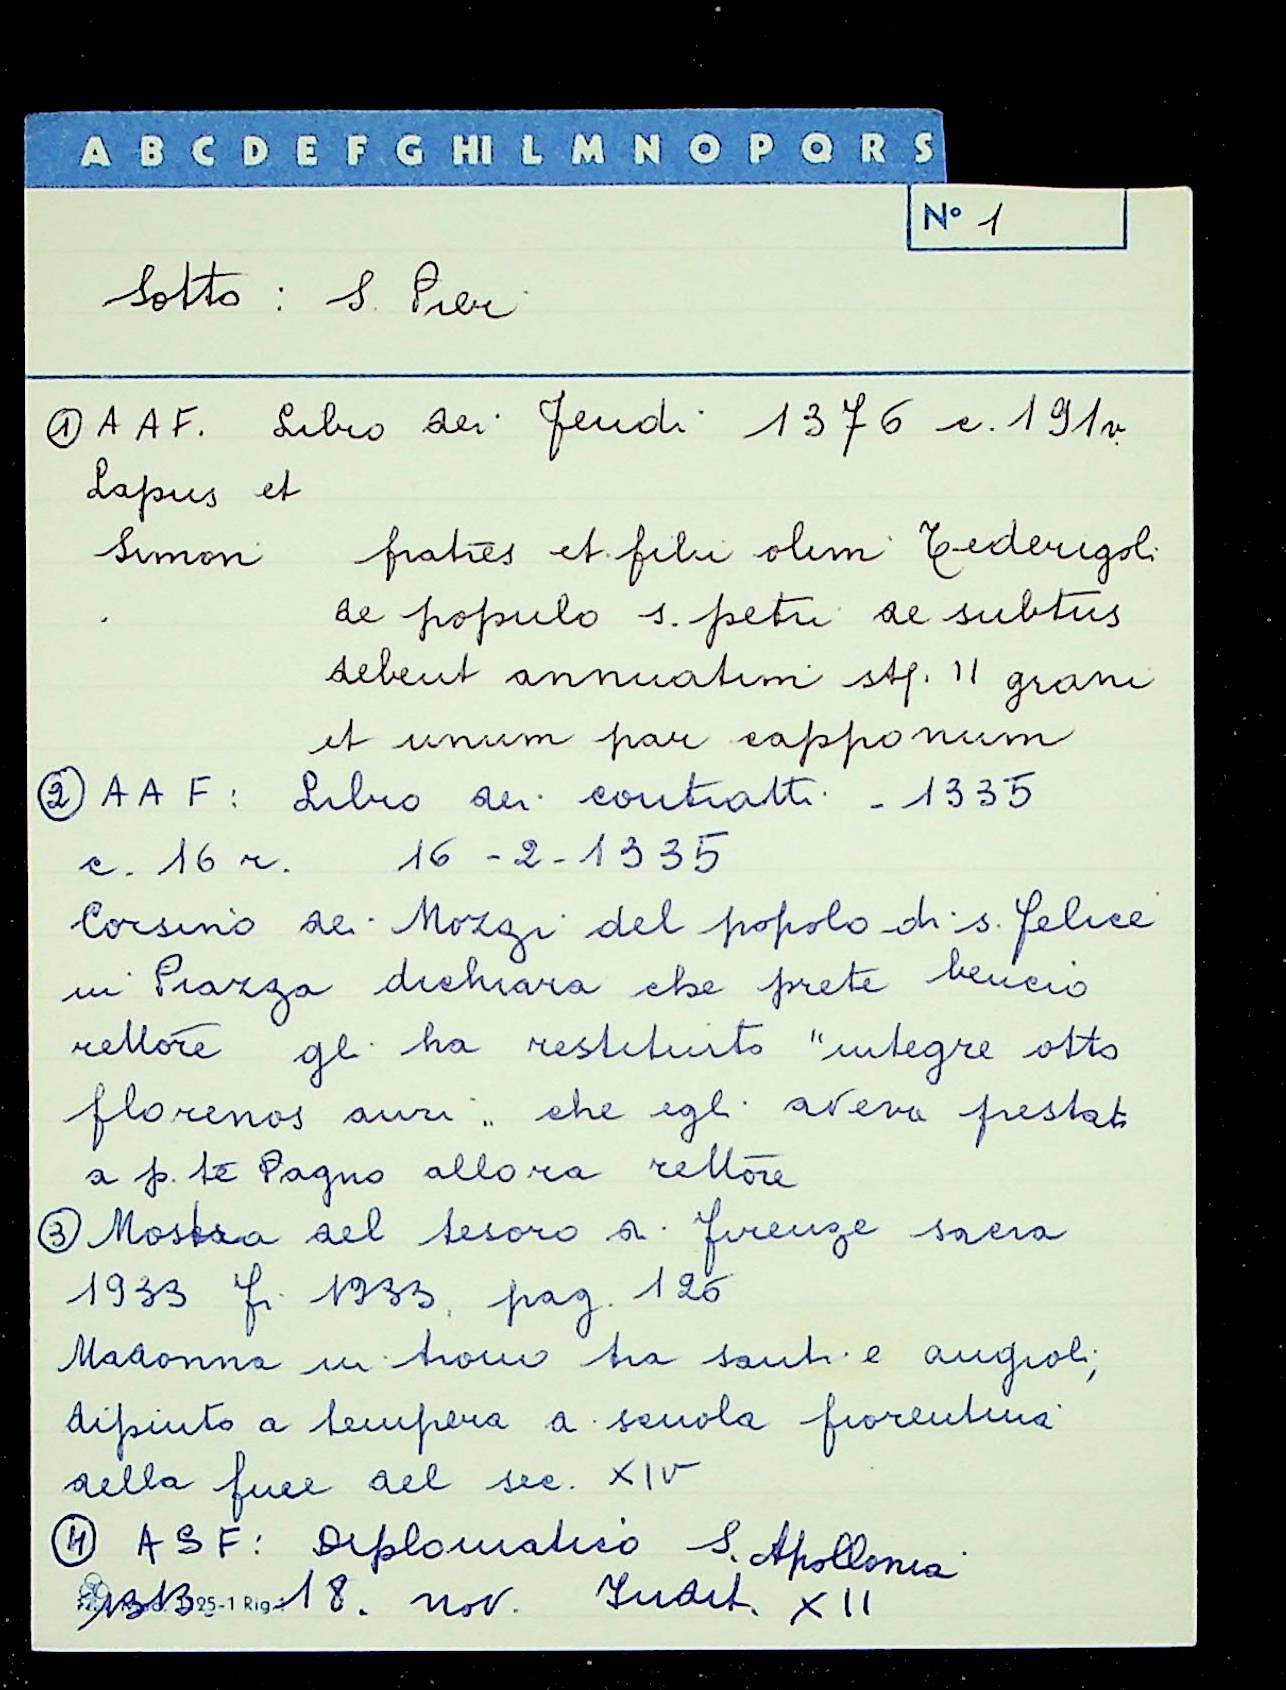 A B C D E F G HI L M N O P Q R S
N° 1
Sotto : S. Pier
① A A F. Libro dei Feudi 1376 c. 191v.
Lapus et
Simon fratr̄es et filii olim Tederigoli
de populo s. petri de subtus
debent annuatim st̄. II grani
et unum par capponum
② A A F : Libro dei contratti - 1335
c. 16 r. 16 - 2 - 1335
Corsino dei Mozzi del popolo di s. Felice
in Piazza dichiara che prete bencio
rettore gli ha restituito "integre otto
florenos auri" che egli aveva prestati
a p. te Pagno allora rettore
③ Mostra del tesoro di Firenze sacra
1933 Fi. 1933, pag. 126
Madonna in trono tra santi e angioli,
dipinto a tempera di scuola fiorentina
della fine del sec. XIV
④ A S F : Diplomatico S. Apollonia
1313 18. nov. Indit. XII
25-1 Rig.